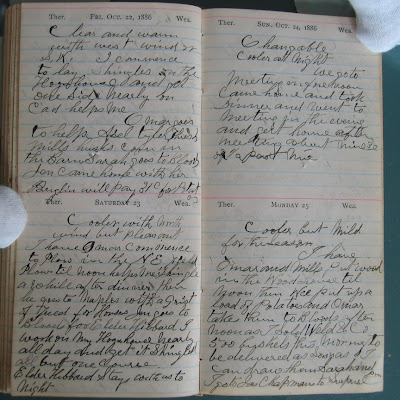 Ther. Fri. Oct. 22, 1886 Wea.
Clear and warm
with west wind or
S.W. I commence
to day Shingles on the
Hoghouse and got
one side nearly on
Cad helps me
Omar goes
to help
Mills husks Corn in
the Barn Sarah goes to Bloods
Jen came home with her
Benjin will Pay 31 C for
Ther. Saturday 23 Wea.
Cooler with North
wind but Pleasant
I have Omar Commence
to Plow in the N.E. Field
Plow til noon helps me Shingle
a while after dinner then
he goes to Naples with a grist
of feed for Horses Jen goes to
Bloods for Elder Hibbard I
work on My Hoghouse Nearly
all day and get it Shingled
but one Course
Elder Hibbard Stay with us to
Night
Ther. Sun. Oct. 24, 1886 Wea.
Changable
Cooler at Night
We go to
Meeting in forenoon
Came home and took
dinner and went to
Meeting in the evening
and got home after
meeting about nine
or a past nine
Ther. Monday 25 Wea.
Cooler but Mild
for the Season
I have
Omar and Mills Cut wood
in the Woods until
Noon then we Put up a
load of Potatoes and Omar
take them to Bloods after
noon as I Sold Weld & Co
500 bushels this Morning to
be delivered as soon as I
can draw them Sarah and
I go to Jim Chapman to